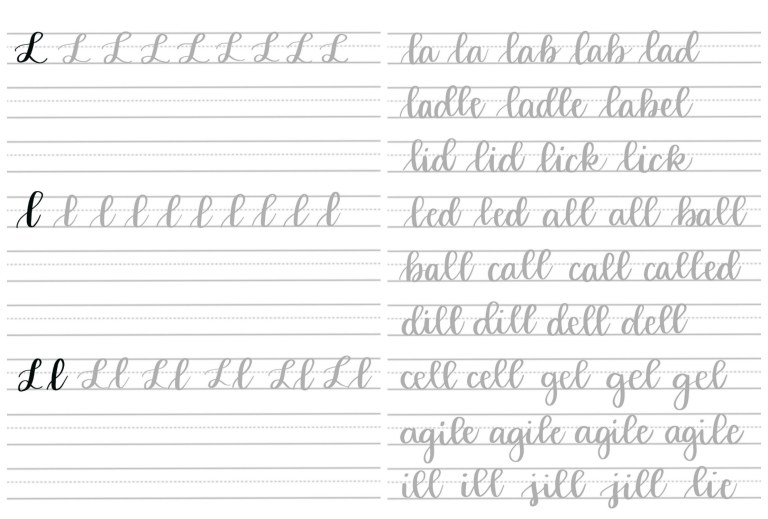 L L L L L L L L L
l l l l l l l l l l
Ll Ll Ll Ll Ll Ll
la la lab lab lad
ladle ladle label
lid lid lick lick
led led all all ball
ball call call called
dill dill dell dell
cell cell gel gel gel
agile agile agile agile
ill ill jill jill lie